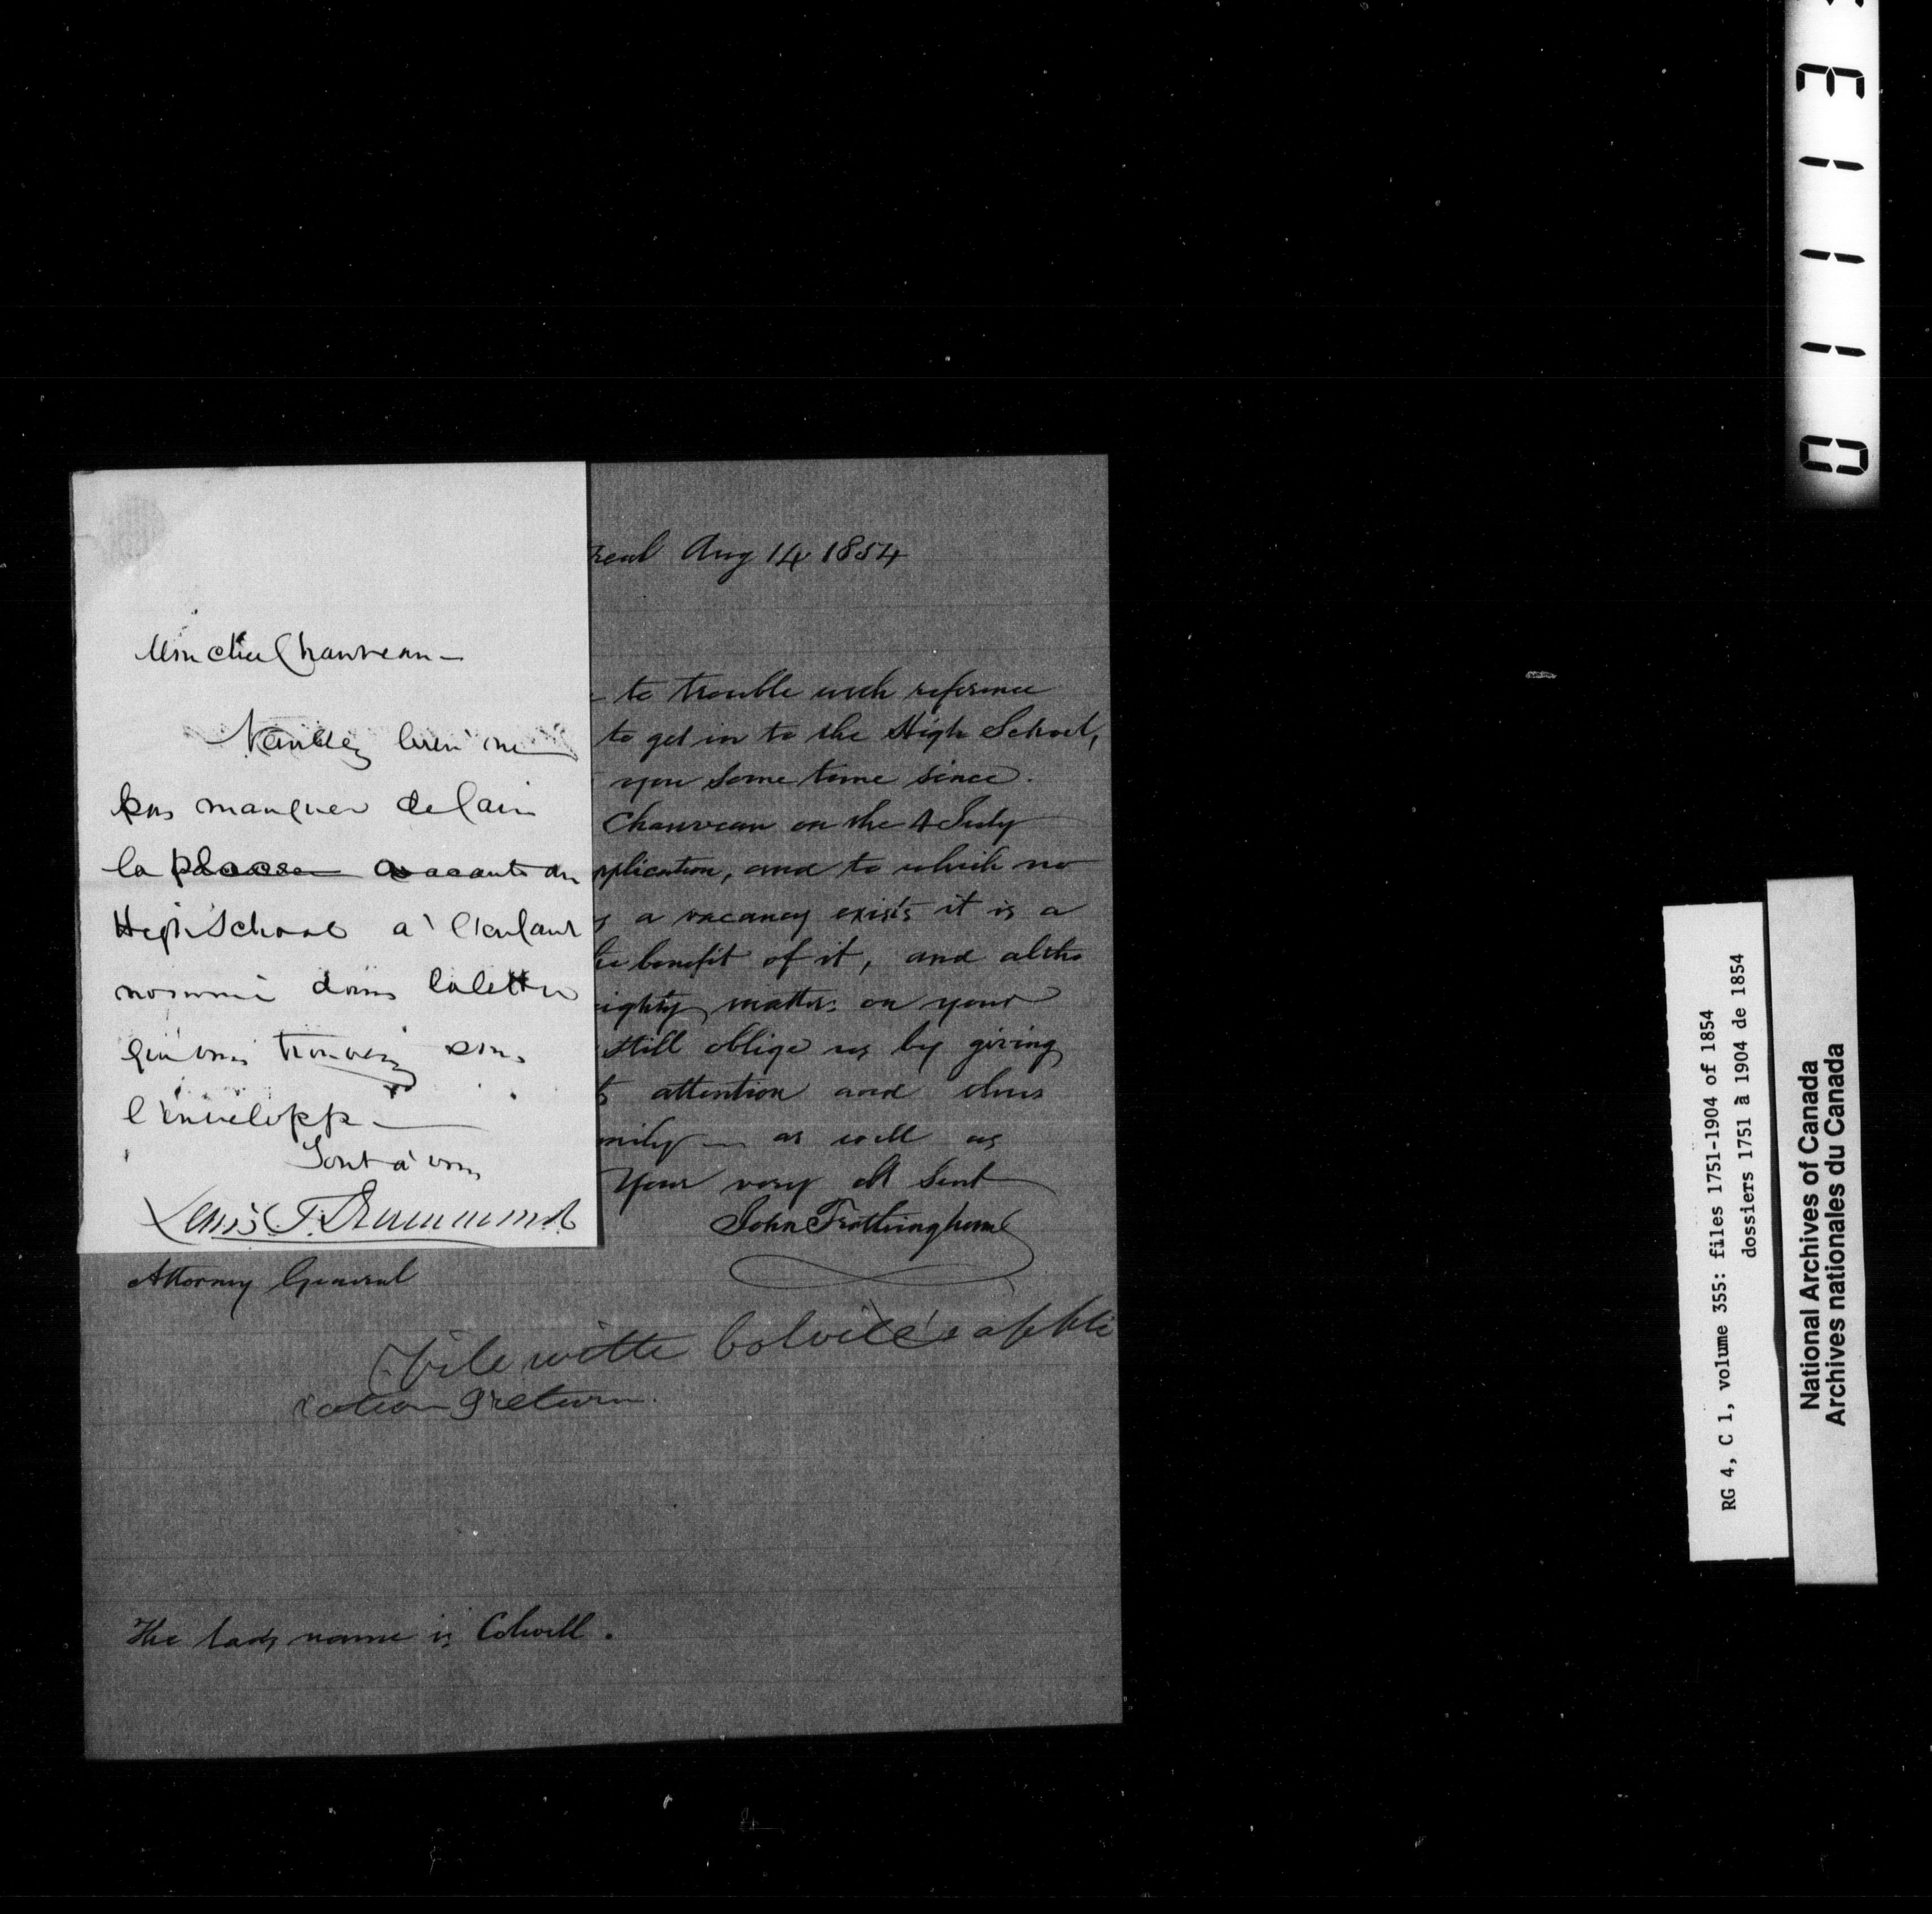 Mon cher Chauveau –
Veuillez bien ne
pas manquer de
la place vacante du
High School à l'enfant
nommé dans la lettre
que vous trouverez sous
l'enveloppe –
Tout à vous
Lewis T. Drummond
real Aug 14 1854
to trouble with reference
to get in to the High School,
you some time since.
Chauveau on the 4 July
plication, and to which no
a vacancy exists it is a
benefit of it, and altho
ighty matters on your
still oblige us by giving
attention and thus
mily – as well as
Your very obt Servt
John Frothingham
Attorney General
File with Colvill's appli
cation & return.
The lads name is Colwill.
RG 4, C 1, volume 355: files 1751-1904 of 1854
dossiers 1751 à 1904 de 1854
National Archives of Canada
Archives nationales du Canada
01113